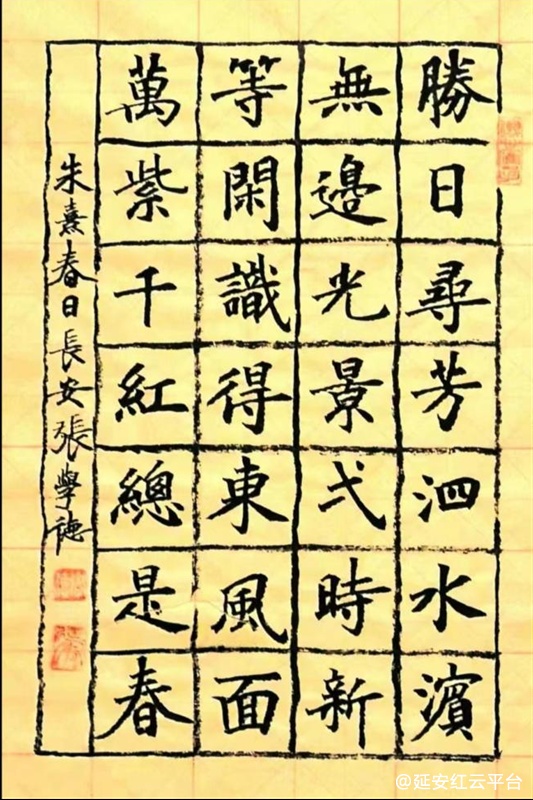 勝日尋芳泗水濱
無邊光景弌時新
等閑識得東風面
萬紫千紅總是春
朱熹春日長安張學德
@延安红云平台